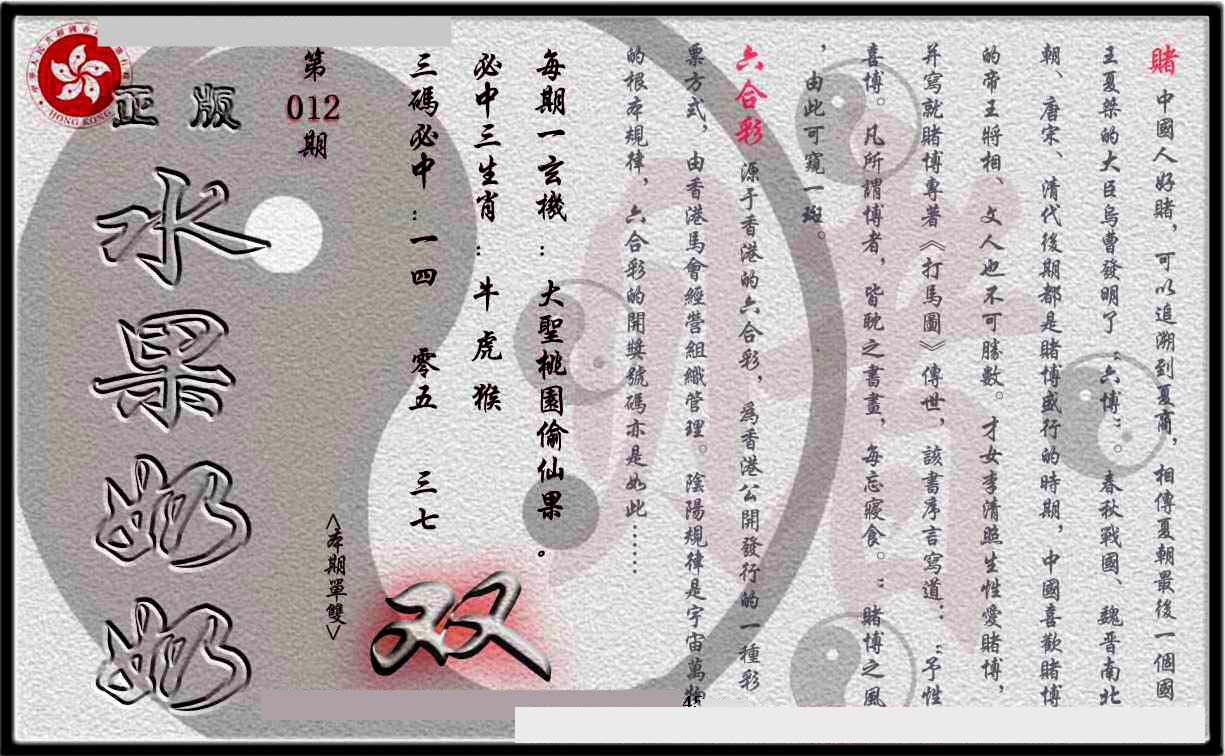 賭 中國人好賭，可以追溯到夏商，相傳夏朝最後一個國
王夏桀的大臣烏曹發明了“六博”。春秋戰國、魏晋南北
朝、唐宋、清代後期都是賭博盛行的時期，中國喜歡賭博
的帝王將相、文人也不可勝數。才女李清照生性愛賭博，
并寫就賭博專著《打馬圖》傳世，該書序言寫道：“予性
喜博。凡所謂博者，皆耽之書畫，每忘寢食。”賭博之風
，由此可窺一斑。
六合彩 源于香港的六合彩，爲香港公開發行的一種彩
票方式，由香港馬會經營組織管理。陰陽規律是宇宙萬物
的根本規律，六合彩的開獎號碼亦是如此……
每期一玄機：大聖桃園偷仙果。
必中三生肖：牛 虎 猴
三碼必中：一四 零五 三七
<本期單雙>
双
第
012
期
正版
水果奶奶
HONG KONG